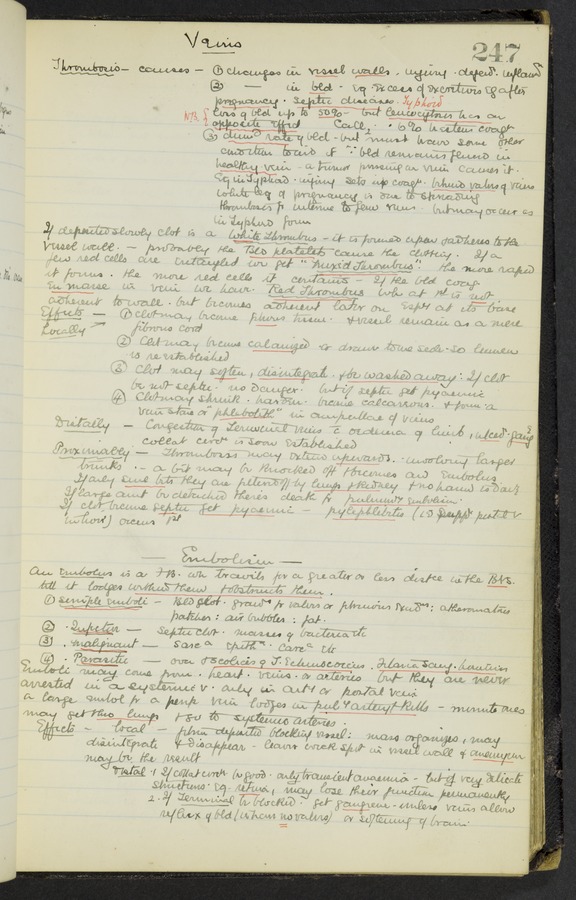 Veins
247
Thrombosis – causes – ① changes in vessel walls, injury
② — in bld. eg excess of excretions eg after
pregnancy. septic diseases. Typhoid
NB { loss of bld up to 50% – but leucocytosis has an
opposite effect CaCl2 6% hastens coagn
③ dimd rate of bld – but must have some other
condition to aid it ∵ bld remains fluid in
healthy vein – a tumor pressing on vein causes it.
Eg in Typhoid – injury sets up coag. behind valves of veins
white leg of pregnancy is due to spreading
thrombosis fr uterine to fem vein – but may occur as
in Typhoid form
If deposited slowly clot is a White Thrombus – it is formed upon & adheres to the
vessel wall. – probably the Bld platelets cause the clotting. If a
few red cells are entangled we get "Mixed Thrombus". the more rapid
it forms. the more red cells it contains – If the bld coag
en masse in vein we have Red Thrombus wh at 1st is not
adherent to wall. but becomes adherent later on esply at its base
Effects – ① clot may become fibrous tissue. & vessel remain as a mere
Locally fibrous cord
② Clot may become canalized so lumen
is re established
③ Clot may soften, disintegrate & be washed away: If clot
be not septic no danger. but if septic get pyaemia
④ Clot may shrink. harden. become calcareous & form a
vein stone or "phlebolith" in ampullae of veins
Distally – Congestion of Terminal veins c oedema of limb, ulced. gang
collat circn is soon established
Proximally – Thrombosis may extend upwards. involving larger
trunks. – a bit may be knocked off & becomes an Embolus
If only small bits they are filtered off by lungs & kidney & no harm is done
If large amt be detached there's death fr pulmony Embolism.
If clot become septic get pyaemia – pylephlebitis (is suppn portal v
in liver) occurs 1st
— Embolism —
An Embolus is a F.B. wh travels for a greater or less distce in the B.Vs.
till it lodges within them & obstructs them.
① Simple Emboli – Bld clot. grans fr valves or fibrinous : atheromatous
patches : air bubbles : fat.
② Infective – Septic clot. masses of bacteria etc
③ malignant – Sarca Epitha Carca etc
④ Parasitic – ova & scolices of T. Echinococcus. Filaria Sang. hominis
Emboli may come from heart. veins. or arteries but they are never
arrested in a systemic v. only in arty or portal vein
a large embol fr a periph vein lodges in puly artery & kills – minute ones
may get thro lungs & so to systemic arteries.
Effects – local – fibrin deposited blocking vessel : mass organizes, may
disintegrate & disappear – leaves weak spot in vessel wall & aneurysm
may be the result
Distal. 1 If collat circn be good – only transient anaemia – but if very delicate
structures eg. retina, may lose their function permanently
2. If Terminal br blocked : get gangrene – unless veins allow
reflux of bld (when no valves) or softening of brain